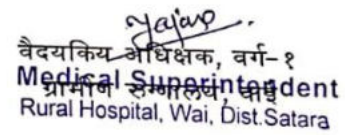 वैदयकिय अधिक्षक, वर्ग-१
ग्रामीण रुग्णालय, वाई
Medical Superintendent
Rural Hospital, Wai, Dist.Satara